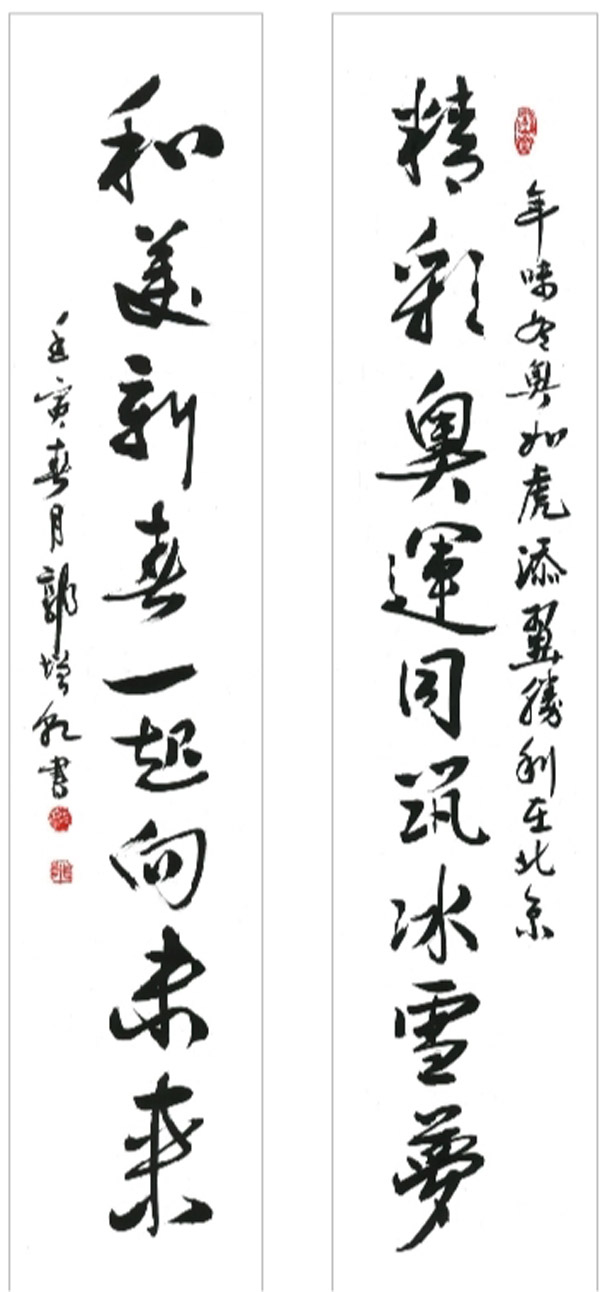 年味冬奥如虎添翼勝利在北京
精彩奥運同筑冰雪夢
和美新春一起向未来
壬寅春月郭增書